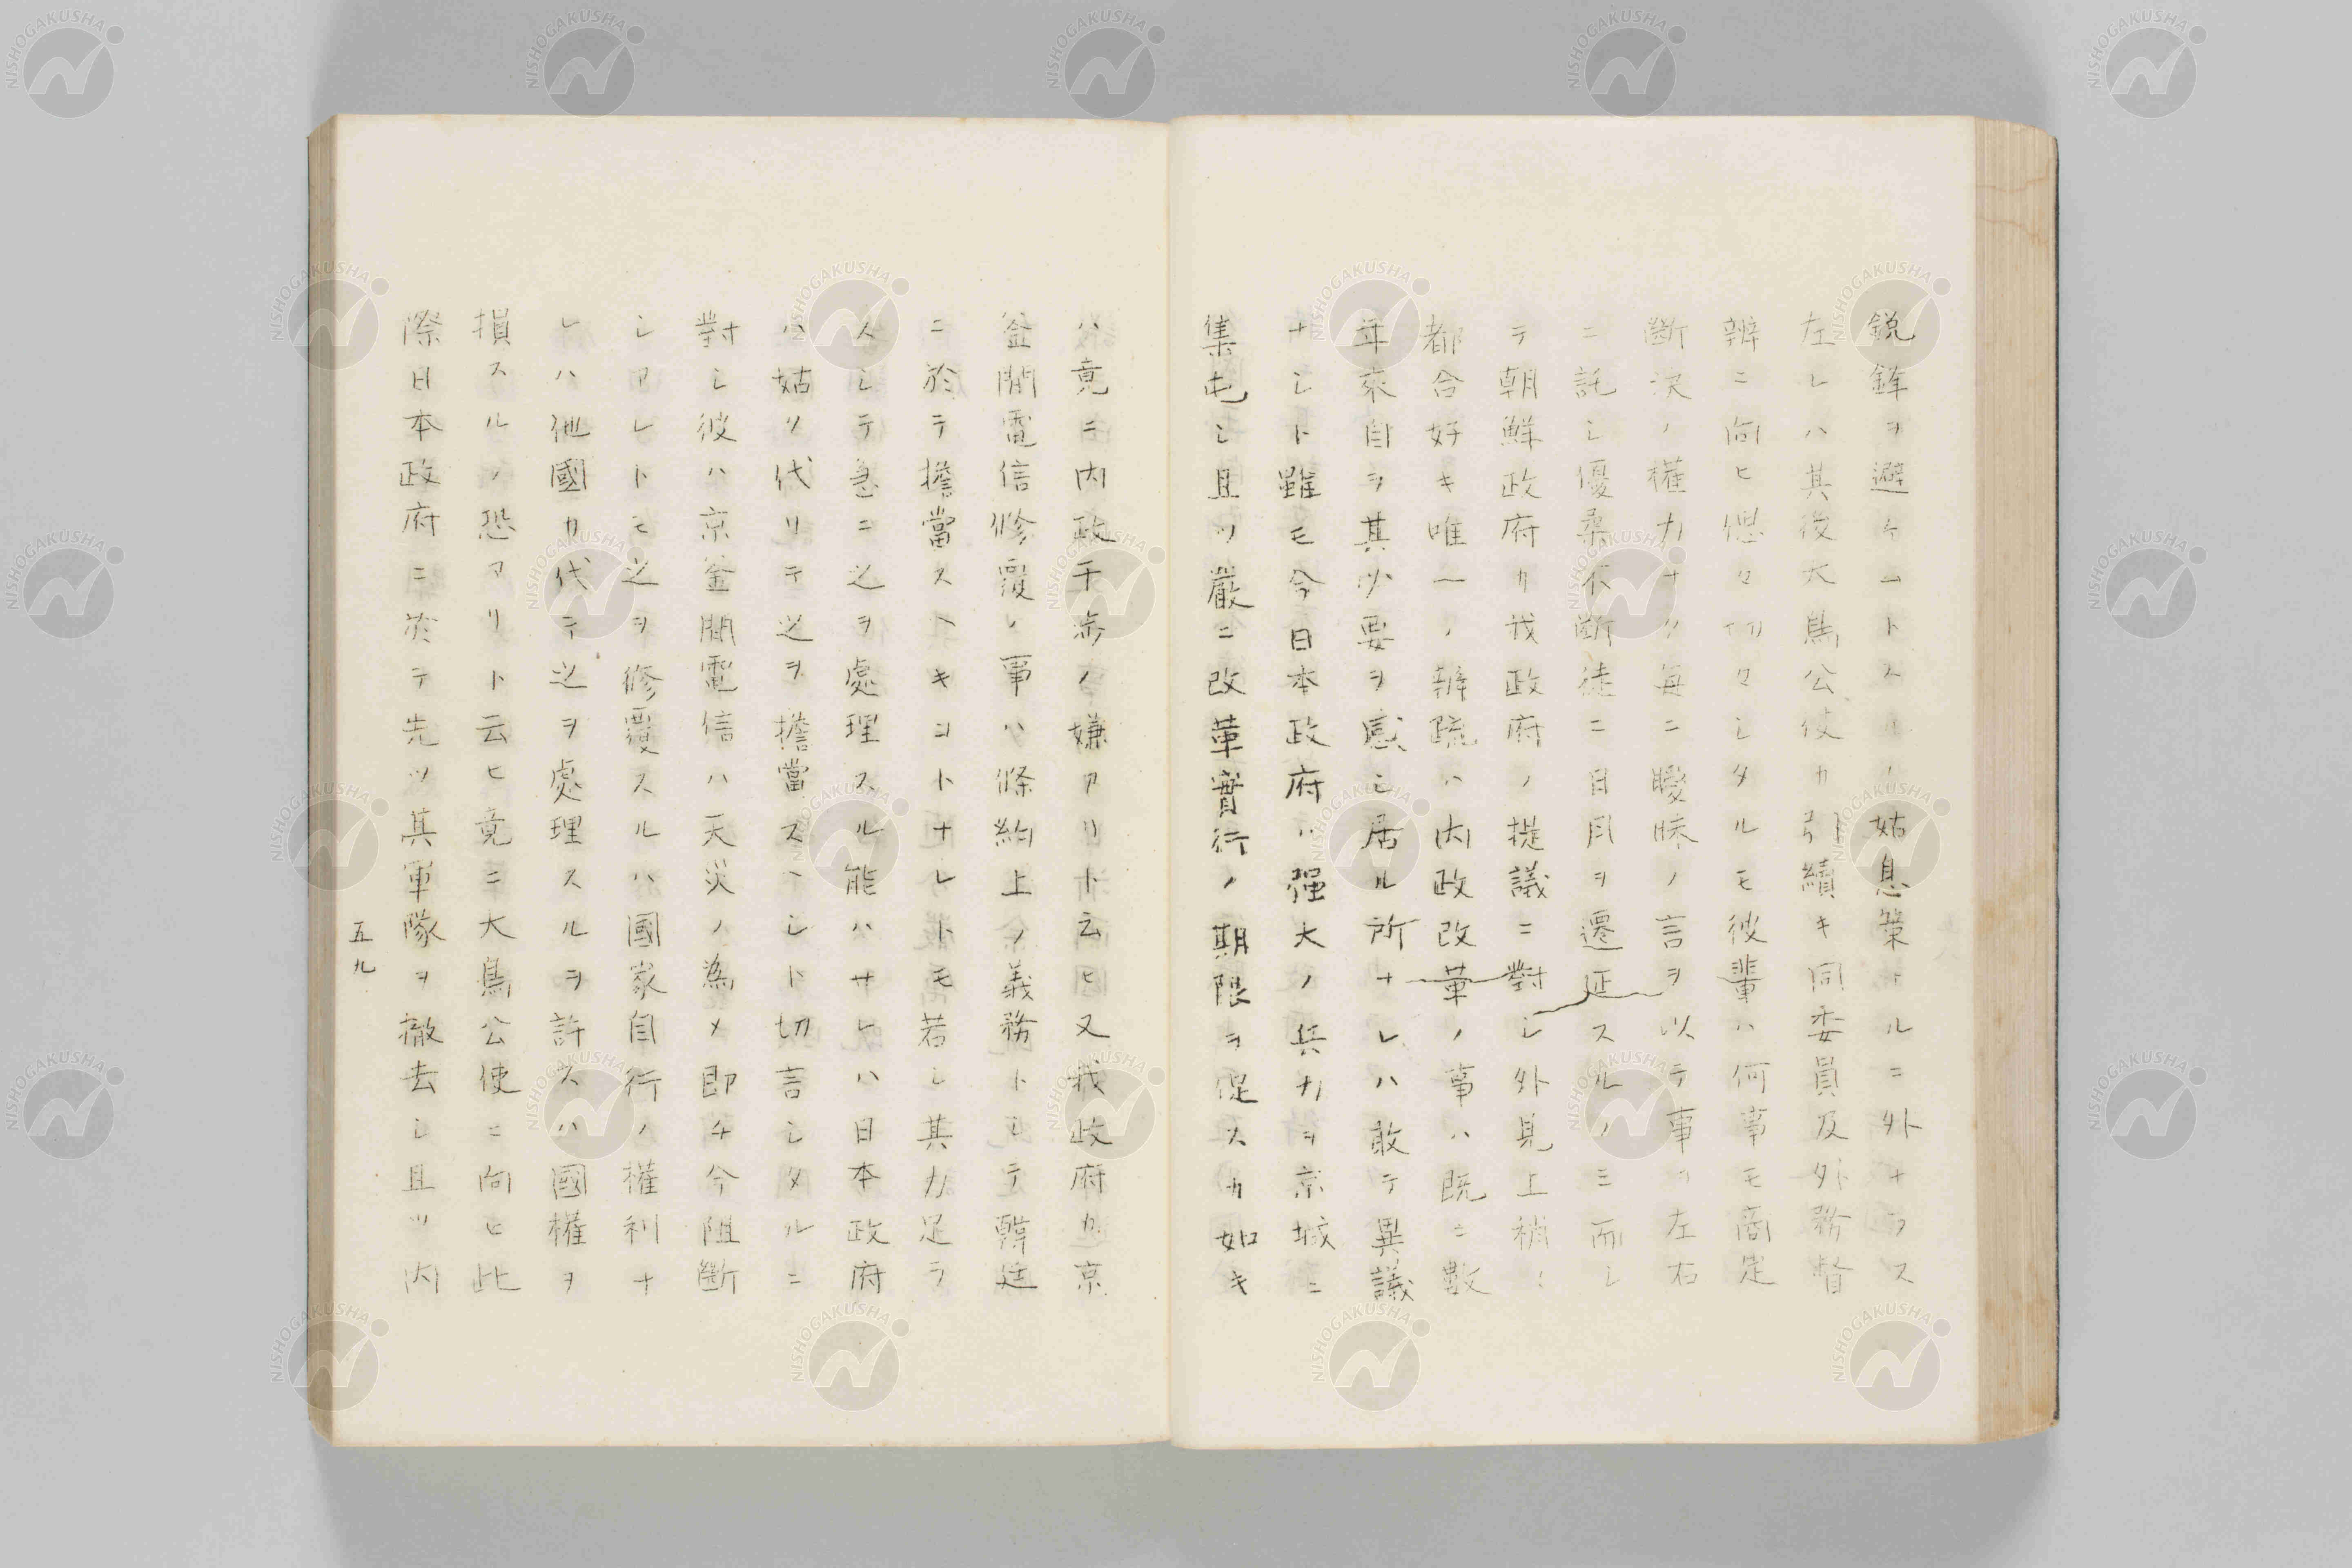 鋭鋒ヲ避ケムトスルノ姑息策ナルニ外ナラス
左レハ其後大鳥公使カ引續キ同委員及外務督
辨ニ向ヒ偲々切々シタルモ彼輩ハ何事モ商定
斷决ノ權力ナク毎ニ曖昧ノ言ヲ以テ事ヲ左右
ニ託シ優柔不斷徒ニ日月ヲ遷延スルノミ而シ
テ朝鮮政府カ我政府ノ提議ニ對シ外見上稍〻
都合好キ唯一ノ辨疏ハ内政改革ノ事ハ既ニ數
年來自ラ其必要ヲ感シ居ル所ナレハ敢テ異議
ナシト雖モ今日本政府ハ强大ノ兵力ヲ京城ニ
集屯シ且ツ嚴ニ改革實行ノ期限ヲ促スカ如キ
ハ竟ニ内政干渉ノ嫌アリト云ヒ又我政府カ京
釜間電信修覆ノ事ハ條約上ノ義務トシテ韓廷
ニ於テ擔當スヘキコトナレトモ若シ其力足ラ
スシテ急ニ之ヲ處理スル能ハサレハ日本政府
ハ姑ク代リテ之ヲ擔當スヘシト切言シタルニ
對シ彼ハ京釜間電信ハ天災ノ為メ即チ今阻斷
シアレトモ之ヲ修覆スルハ國家自行ノ權利ナ
レハ他國カ代テ之ヲ處理スルヲ許スハ國權ヲ
損スルノ恐アリト云ヒ竟ニ大鳥公使ニ向ヒ此
際日本政府ニ於テ先ツ其軍隊ヲ撤去シ且ツ内
五九
NISHOGAKUSHA